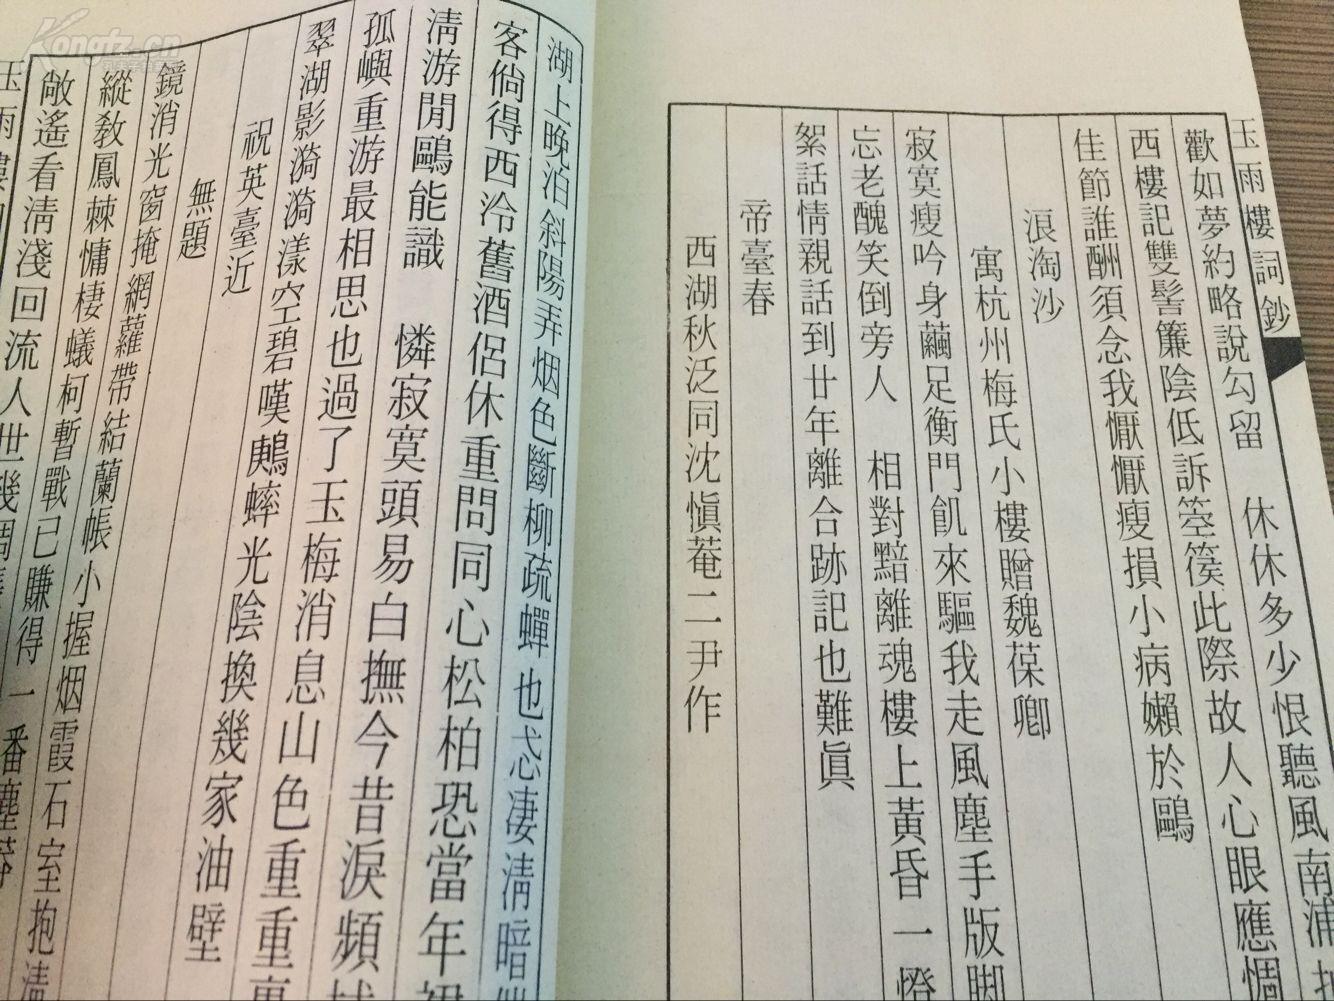 玉雨樓詞鈔
歡如夢約略說勾留　休休多少恨聽風南浦
西樓記雙髻簾陰低訴箜篌此際故人心眼應惆
佳節誰酬須念我懨懨瘦損小病嬾於鷗
浪淘沙
寓杭州梅氏小樓贈魏葆卿
寂寞瘦吟身繭足衡門飢來驅我走風塵手版脚
忘老醜笑倒旁人　相對黯離魂樓上黃昏一燈
絮話情親話到廿年離合跡記也難眞
帝臺春
西湖秋泛同沈愼菴二尹作
湖上晚泊斜陽弄烟色斷柳疏蟬也忒凄淸暗
客倘得西泠舊酒侶休重問同心松柏恐當年
淸游閒鷗能識　憐寂寞頭易白撫今昔淚頻
孤嶼重游最相思也過了玉梅消息山色重重
翠湖影漪漪漾空碧嘆鶗蟀光陰換幾家油壁
祝英臺近
無題
鏡消光窗掩網蘿帶結蘭帳小握烟霞石室抱淸
縱敎鳳棘慵棲蟻柯暫戰已賺得一番塵
敞遙看淸淺回流人世幾
玉雨樓
Kongfz.cn